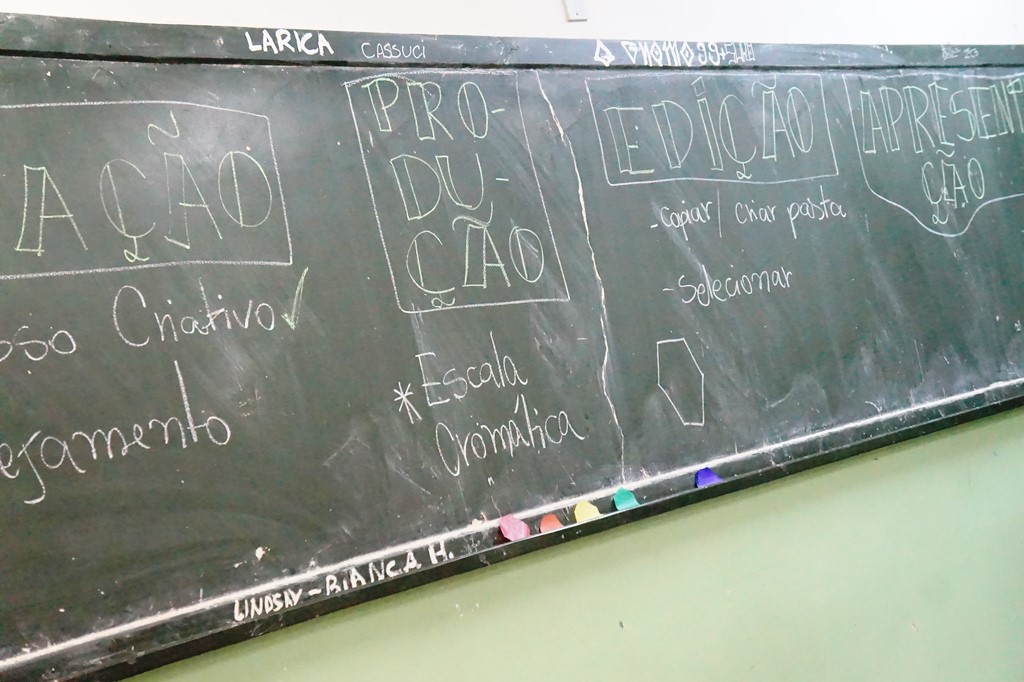 LARICA CASSUCI
AÇÃO
oso Criativo ✓
ejamento
PRO-
DU-
ÇÃO
* Escala
Cromática
EDIÇÃO
- Copiar / Criar pasta
- Selecionar
APRESENT
ÇÃO
LINDSAY - BIANCA H.